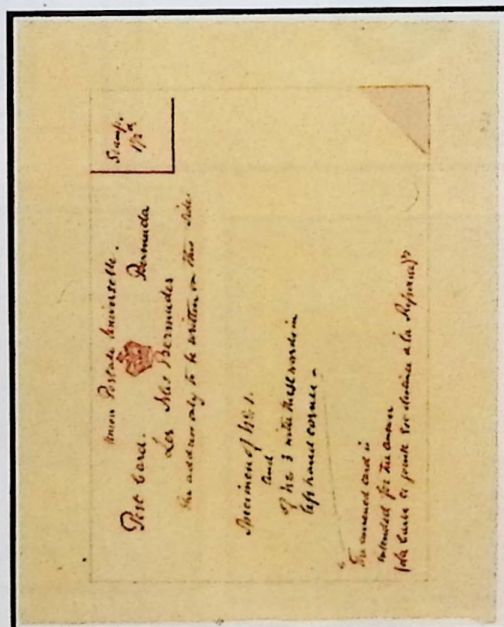 Union Postale Universelle.
Post Card. Bermuda
Les Iles Bermudes
The address only to be written on this side.
Stamp.
1/2 d
Specimen of No 1.
and
of No 3 with these words in
left hand corner -
"The annexed card is
intended for the answer
(la carte ci jointe est destinée à la Réponse)"